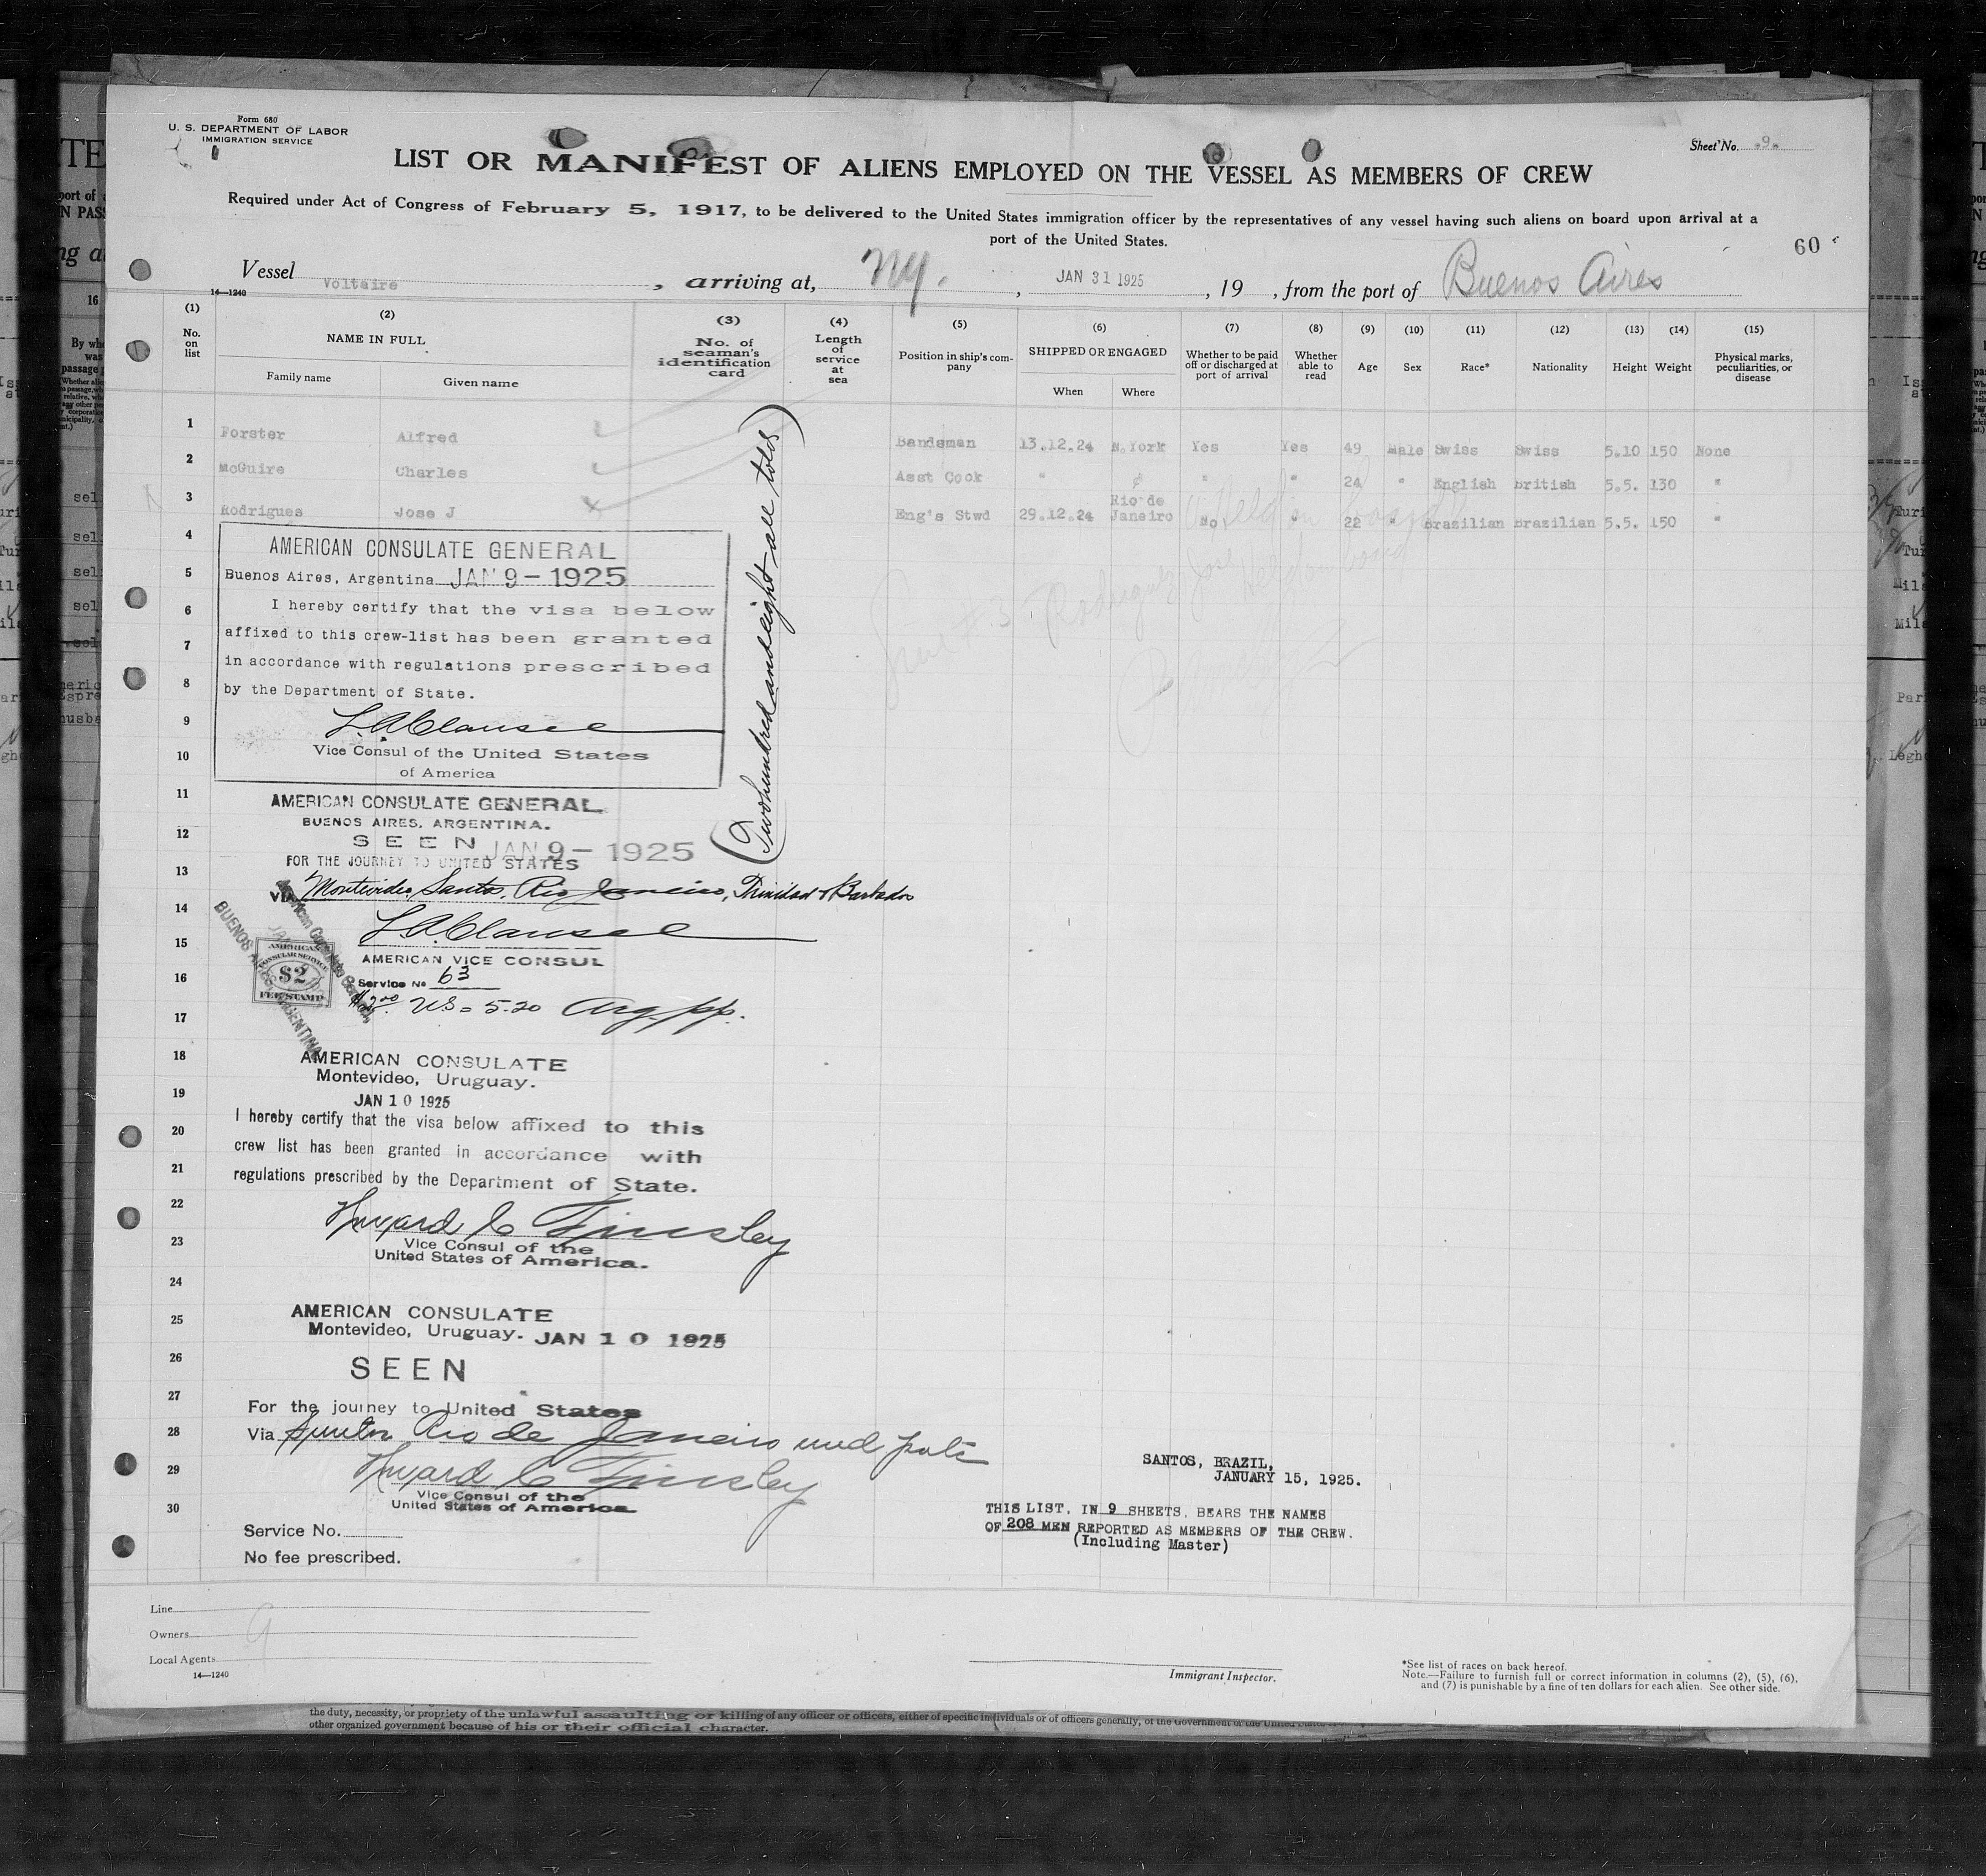 Form 680
U. S. DEPARTMENT OF LABOR
IMMIGRATION SERVICE
Sheet No. -9-
LIST OR MANIFEST OF ALIENS EMPLOYED ON THE VESSEL AS MEMBERS OF CREW
Required under Act of Congress of February 5, 1917, to be delivered to the United States immigration officer by the representatives of any vessel having such aliens on board upon arrival at a
port of the United States.
60
Vessel Voltaire, arriving at, NY., JAN 31 1925, 19 , from the port of Buenos Aires
14—1240
(1) (2) (3) (4) (5) (6) (7) (8) (9) (10) (11) (12) (13) (14) (15)
No. on list NAME IN FULL No. of seaman's identification card Length of service at sea Position in ship's company SHIPPED OR ENGAGED Whether to be paid off or discharged at port of arrival Whether able to read Age Sex Race* Nationality Height Weight Physical marks, peculiarities, or disease
Family name Given name When Where
1 Forster Alfred Bandsman 13.12.24 N.York Yes Yes 49 Male Swiss Swiss 5.10 150 None
2 McGuire Charles Asst Cook " " " " 24 " English British 5.5. 130 "
3 Rodrigues Jose J Eng's Stwd 29.12.24 Rio de Janeiro No " 22 " Brazilian Brazilian 5.5. 150 "
Held on board
(Twohundredandeight—all told)
4
5
6
7
8
9
10
11
12
13
14
15
16
17
18
19
20
21
22
23
24
25
26
27
28
29
30
AMERICAN CONSULATE GENERAL
Buenos Aires, Argentina JAN 9 - 1925
I hereby certify that the visa below
affixed to this crew-list has been granted
in accordance with regulations prescribed
by the Department of State.
Vice Consul of the United States
of America
AMERICAN CONSULATE GENERAL
BUENOS AIRES, ARGENTINA.
SEEN JAN 9 - 1925
FOR THE JOURNEY TO UNITED STATES
VIA Montevideo, Santos, Rio Janeiro, Trinidad & Barbados
AMERICAN VICE CONSUL
AMERICAN
CONSULAR SERVICE
$2
FEE STAMP
American Consulate General
BUENOS AIRES, ARGENTINA
Service No 63
$2.00 US = 5.20 Arg pp.
AMERICAN CONSULATE
Montevideo, Uruguay.
JAN 10 1925
I hereby certify that the visa below affixed to this
crew list has been granted in accordance with
regulations prescribed by the Department of State.
Vice Consul of the
United States of America.
AMERICAN CONSULATE
Montevideo, Uruguay. JAN 10 1925
SEEN
For the journey to United States
Via Santos Rio de Janeiro and ports
Vice Consul of the
United States of America
Service No.
No fee prescribed.
SANTOS, BRAZIL,
JANUARY 15, 1925.
THIS LIST, IN 9 SHEETS, BEARS THE NAMES
OF 208 MEN REPORTED AS MEMBERS OF THE CREW.
(Including Master)
Line
Owners
Local Agents
14—1240
Immigrant Inspector.
*See list of races on back hereof.
Note.—Failure to furnish full or correct information in columns (2), (5), (6),
and (7) is punishable by a fine of ten dollars for each alien. See other side.
the duty, necessity, or propriety of the unlawful assaulting or killing of any officer or officers, either of specific individuals or of officers generally, of the Government of the United
other organized government because of his or their official character.